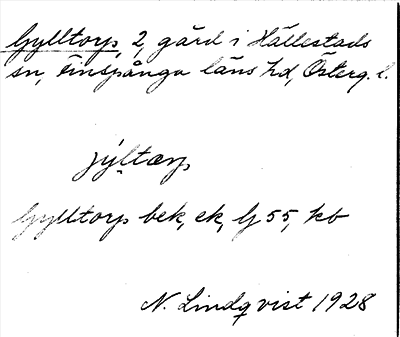 Gylltorp, 2, gård i Hällestads
sn, Finspånga läns hd, Österg. l.
jyltærp
Gylltorp bek, ek, Gj 55, kb
N. Lindqvist 1928